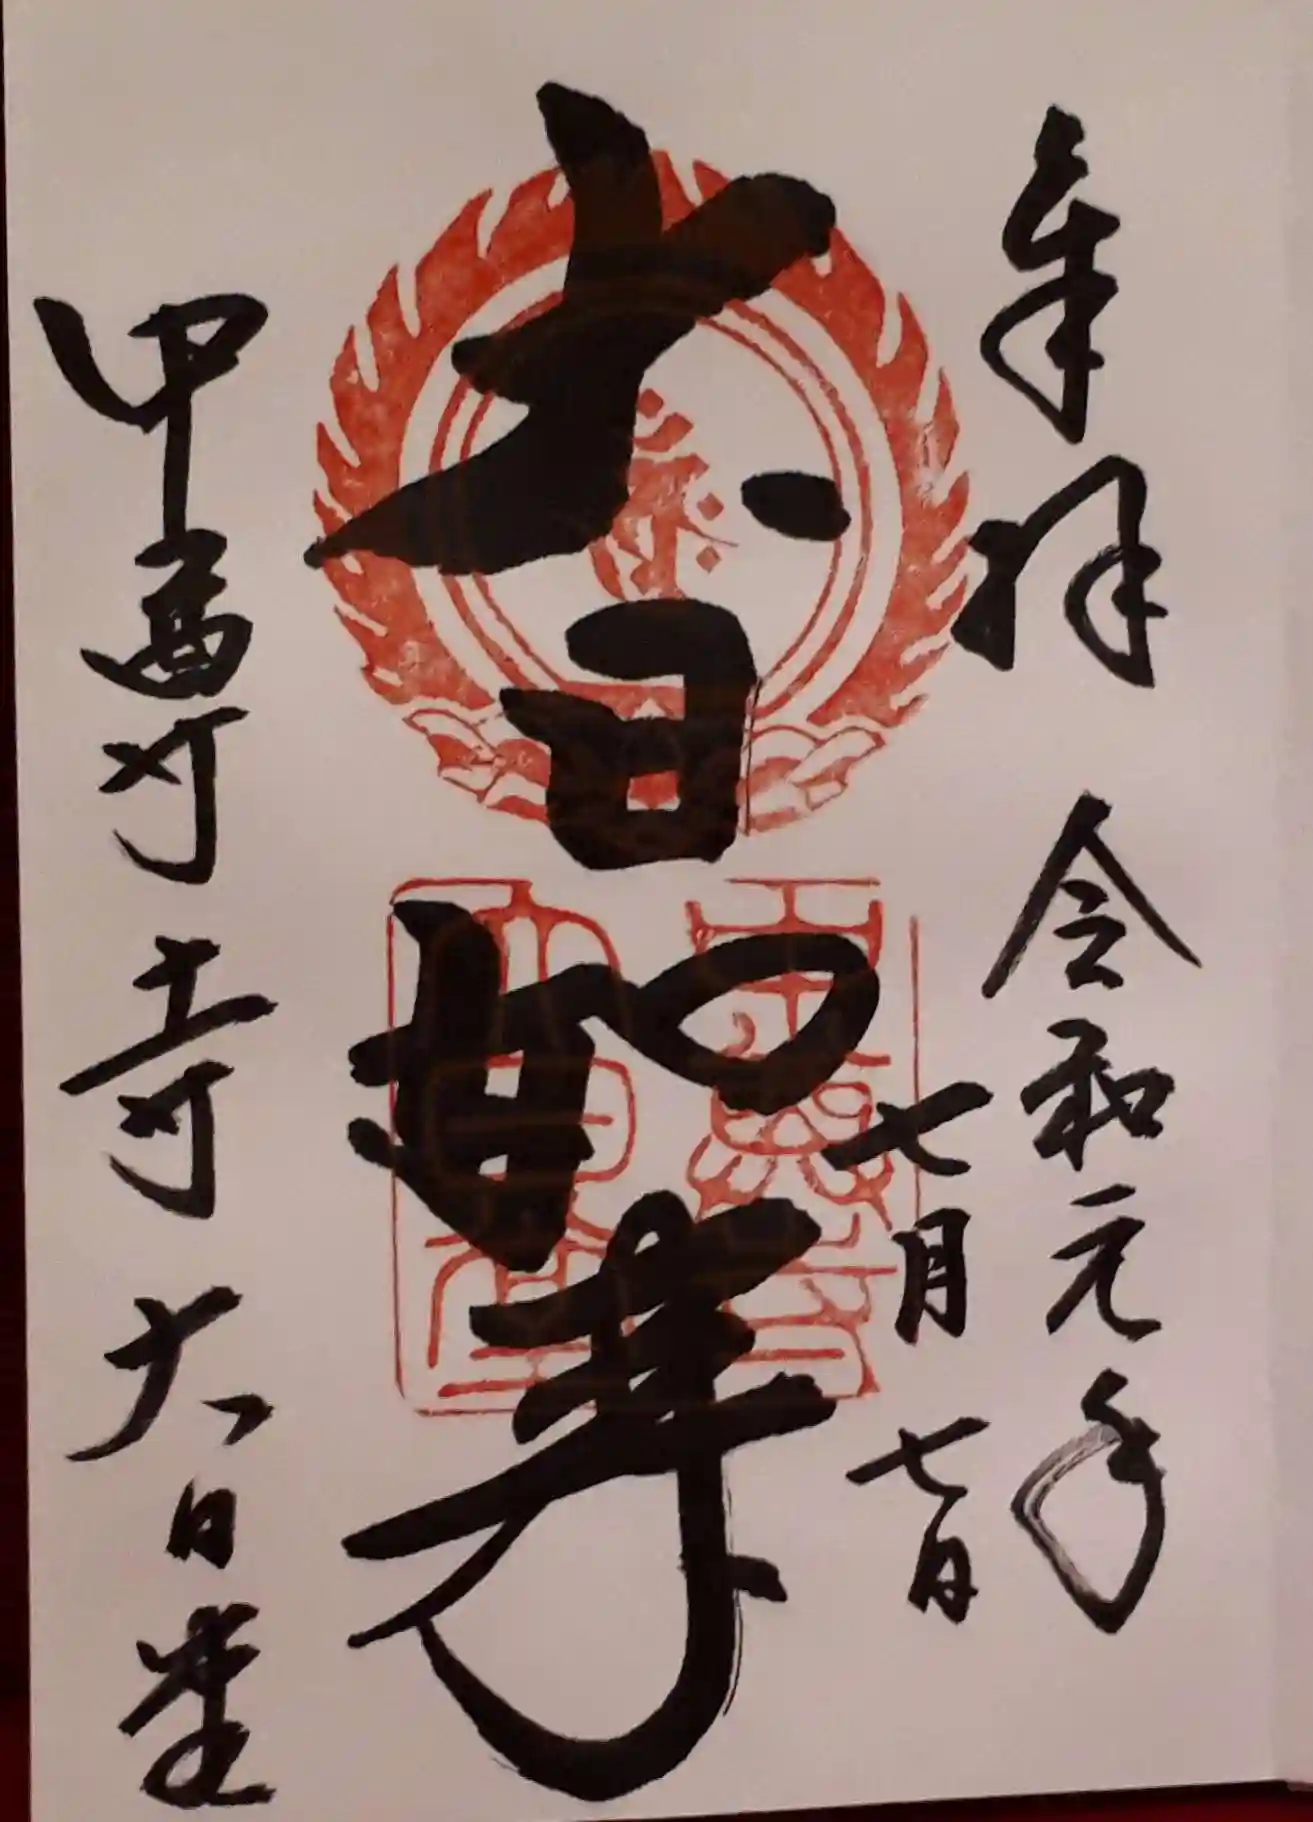 奉拝 令和元年
七月七日
大日如来
寺 大日堂